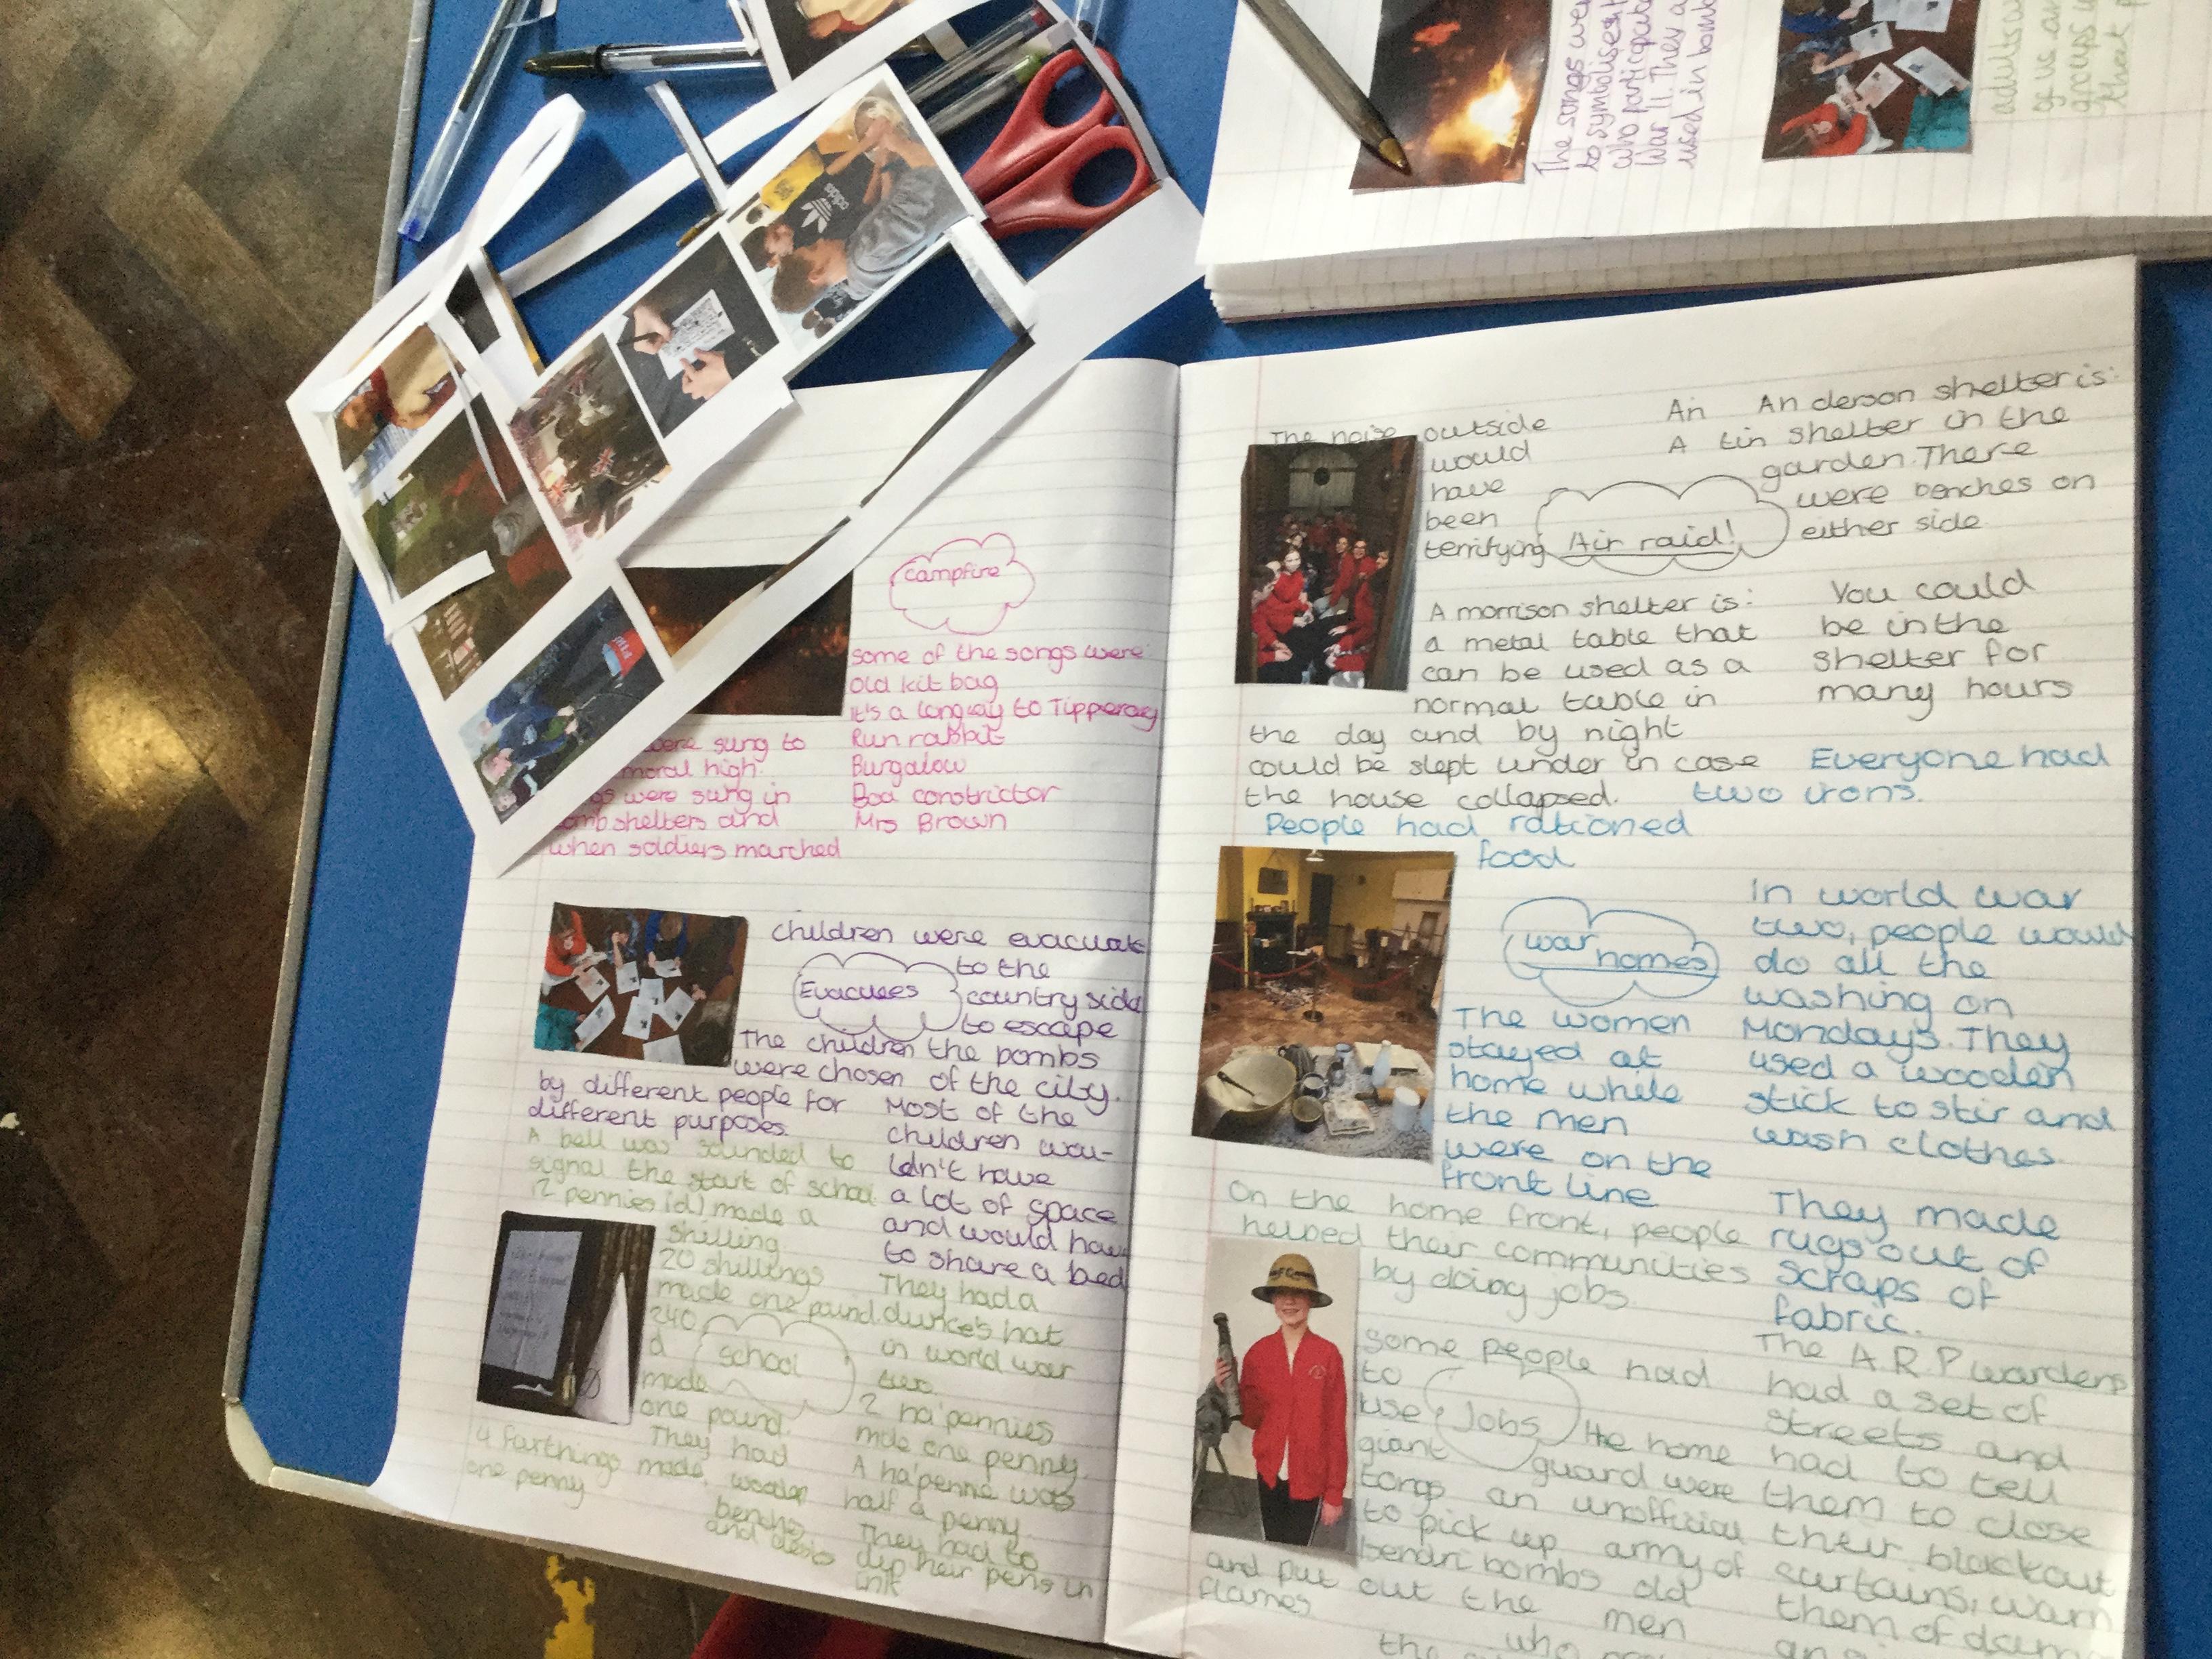 The songs wer
to symbolise t
who participate
War II. They a
used in bomb
adults
of us an
groups
that
adidas
campfire
some of the songs were
Old kit bag
It's a long way to Tipperary
Run rabbit
Bungalow
Boa constrictor
Mrs Brown
were sung to
moral high.
were sung in
shelters and
when soldiers marched
children were evacuate
to the
country side
to escape
the bombs
of the city.
Evacuees
The children
were chosen
by different people for
different purposes.
Most of the
children wou-
ldn't have
a lot of space
and would have
to share a bed
A bell was sounded to
signal the start of school
12 pennies (d) made a
shilling
20 shillings
made one pound.
240
d
made
one pound.
school
They had
wooden
benches
and desks
4 farthings made
one penny
They had a
dunce's hat
in world war
two.
2 ha'pennies
mde one penny.
A ha'penne was
half a penny
They had to
dip their pens in
ink
The noise outside
would
have
been
terrifying
Air raid!
An Anderson shelter is:
A tin shelter in the
garden. There
were benches on
either side
A morrison shelter is:
a metal table that
can be used as a
normal table in
the day and by night
could be slept under in case
the house collapsed.
You could
be in the
shelter for
many hours
Everyone had
two irons.
People had rationed
food
war homes
The women
stayed at
home while
the men
were on the
front line
In world war
two, people would
do all the
washing on
Mondays. They
used a wooden
stick to stir and
wash clothes.
They made
rugs out of
scraps of
fabric.
On the home front, people
helped their communities
by doing jobs.
Some people had
to
use
giant
tongs
to pick up
bombs
and put out the
flames
Jobs
the home
guard were
an unofficial
army of
old
men
who
The A.R.P wardens
had a set of
streets and
had to tell
them to close
their blackout
curtains, warn
them of